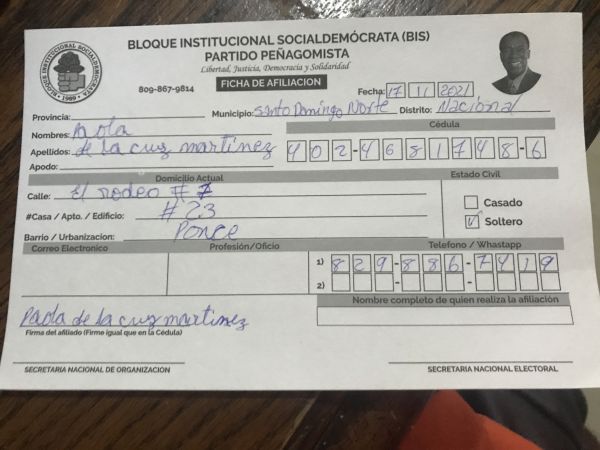 BLOQUE INSTITUCIONAL SOCIALDEMÓCRATA (BIS)
PARTIDO PEÑAGOMISTA
Libertad, Justicia, Democracia y Solidaridad
BLOQUE INSTITUCIONAL SOCIALDEMÓCRATA
• 1989 •
809-867-9814 FICHA DE AFILIACION Fecha: 17 11 2021
Provincia: Municipio: Santo Domingo Norte Distrito: Nacional
Nombres: Paola
Cédula
Apellidos: de la cruz martinez 402-4681748-6
Apodo:
Domicilio Actual Estado Civil
Calle: El rodeo # 7
Casado
#Casa / Apto. / Edificio: # 23
Soltero
Barrio / Urbanizacion: Ponce
Correo Electronico Profesión/Oficio Telefono / Whastapp
1) 829-886-7419
2) - -
Nombre completo de quien realiza la afiliación
Paola de la cruz martinez
Firma del afiliado (Firme igual que en la Cédula)
SECRETARIA NACIONAL DE ORGANIZACION SECRETARIA NACIONAL ELECTORAL